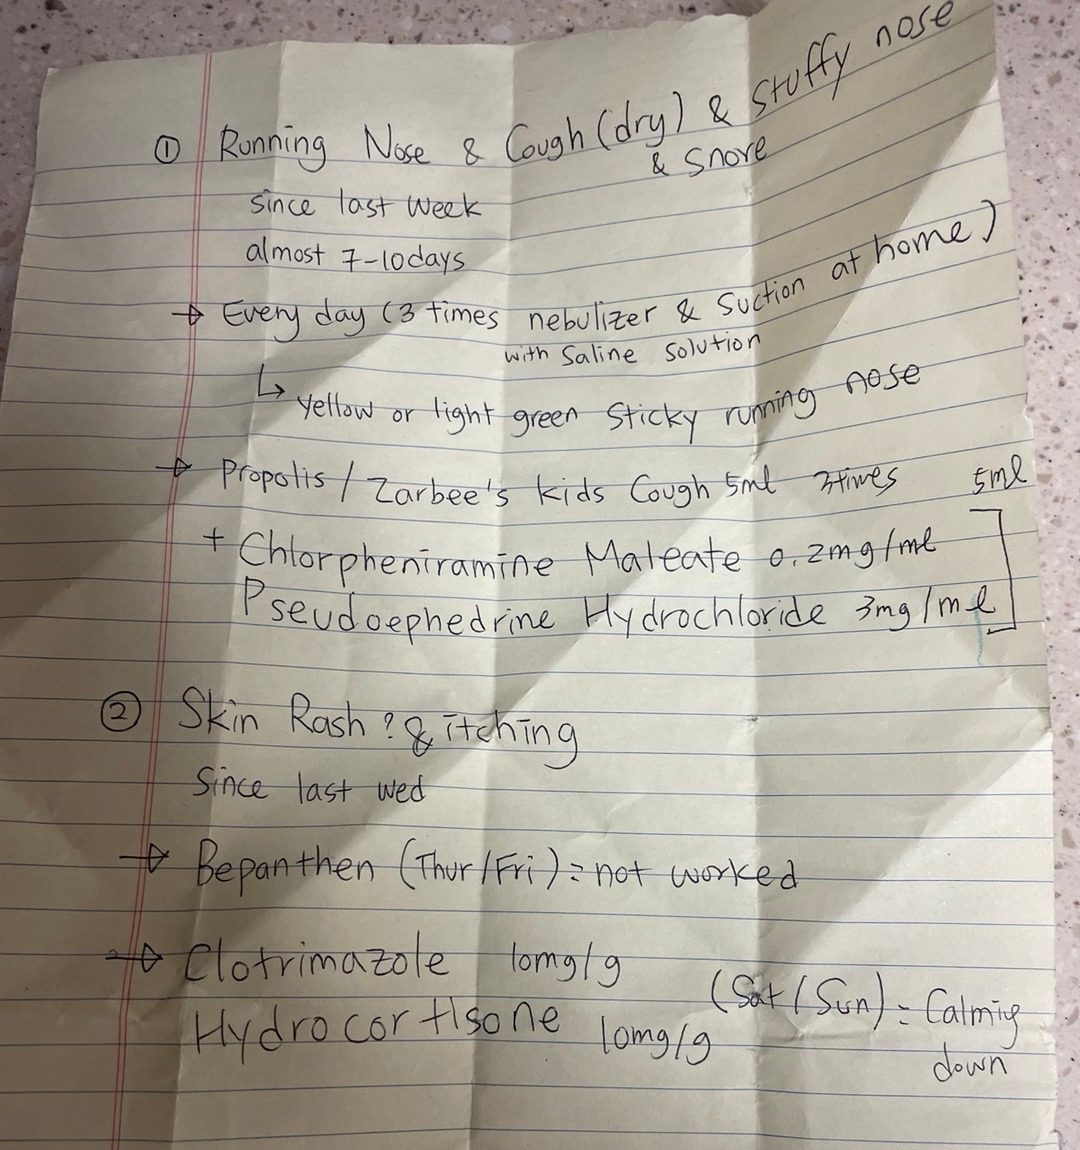 ① Running Nose & Cough (dry) & Stuffy nose
& Snore
since last week
almost 7-10days
→ Every day (3 times nebulizer & Suction at home)
with Saline Solution
↳ yellow or light green Sticky running nose
→ Propolis / Zarbee's kids Cough 5ml 3times 5ml
+ Chlorpheniramine Maleate 0.2mg/ml
Pseudoephedrine Hydrochloride 3mg/ml
② Skin Rash? & itching
Since last wed
→ Bepanthen (Thur/Fri) = not worked
→ Clotrimazole 10mg/g
Hydrocortisone 10mg/g (Sat/Sun) = Calmig
down